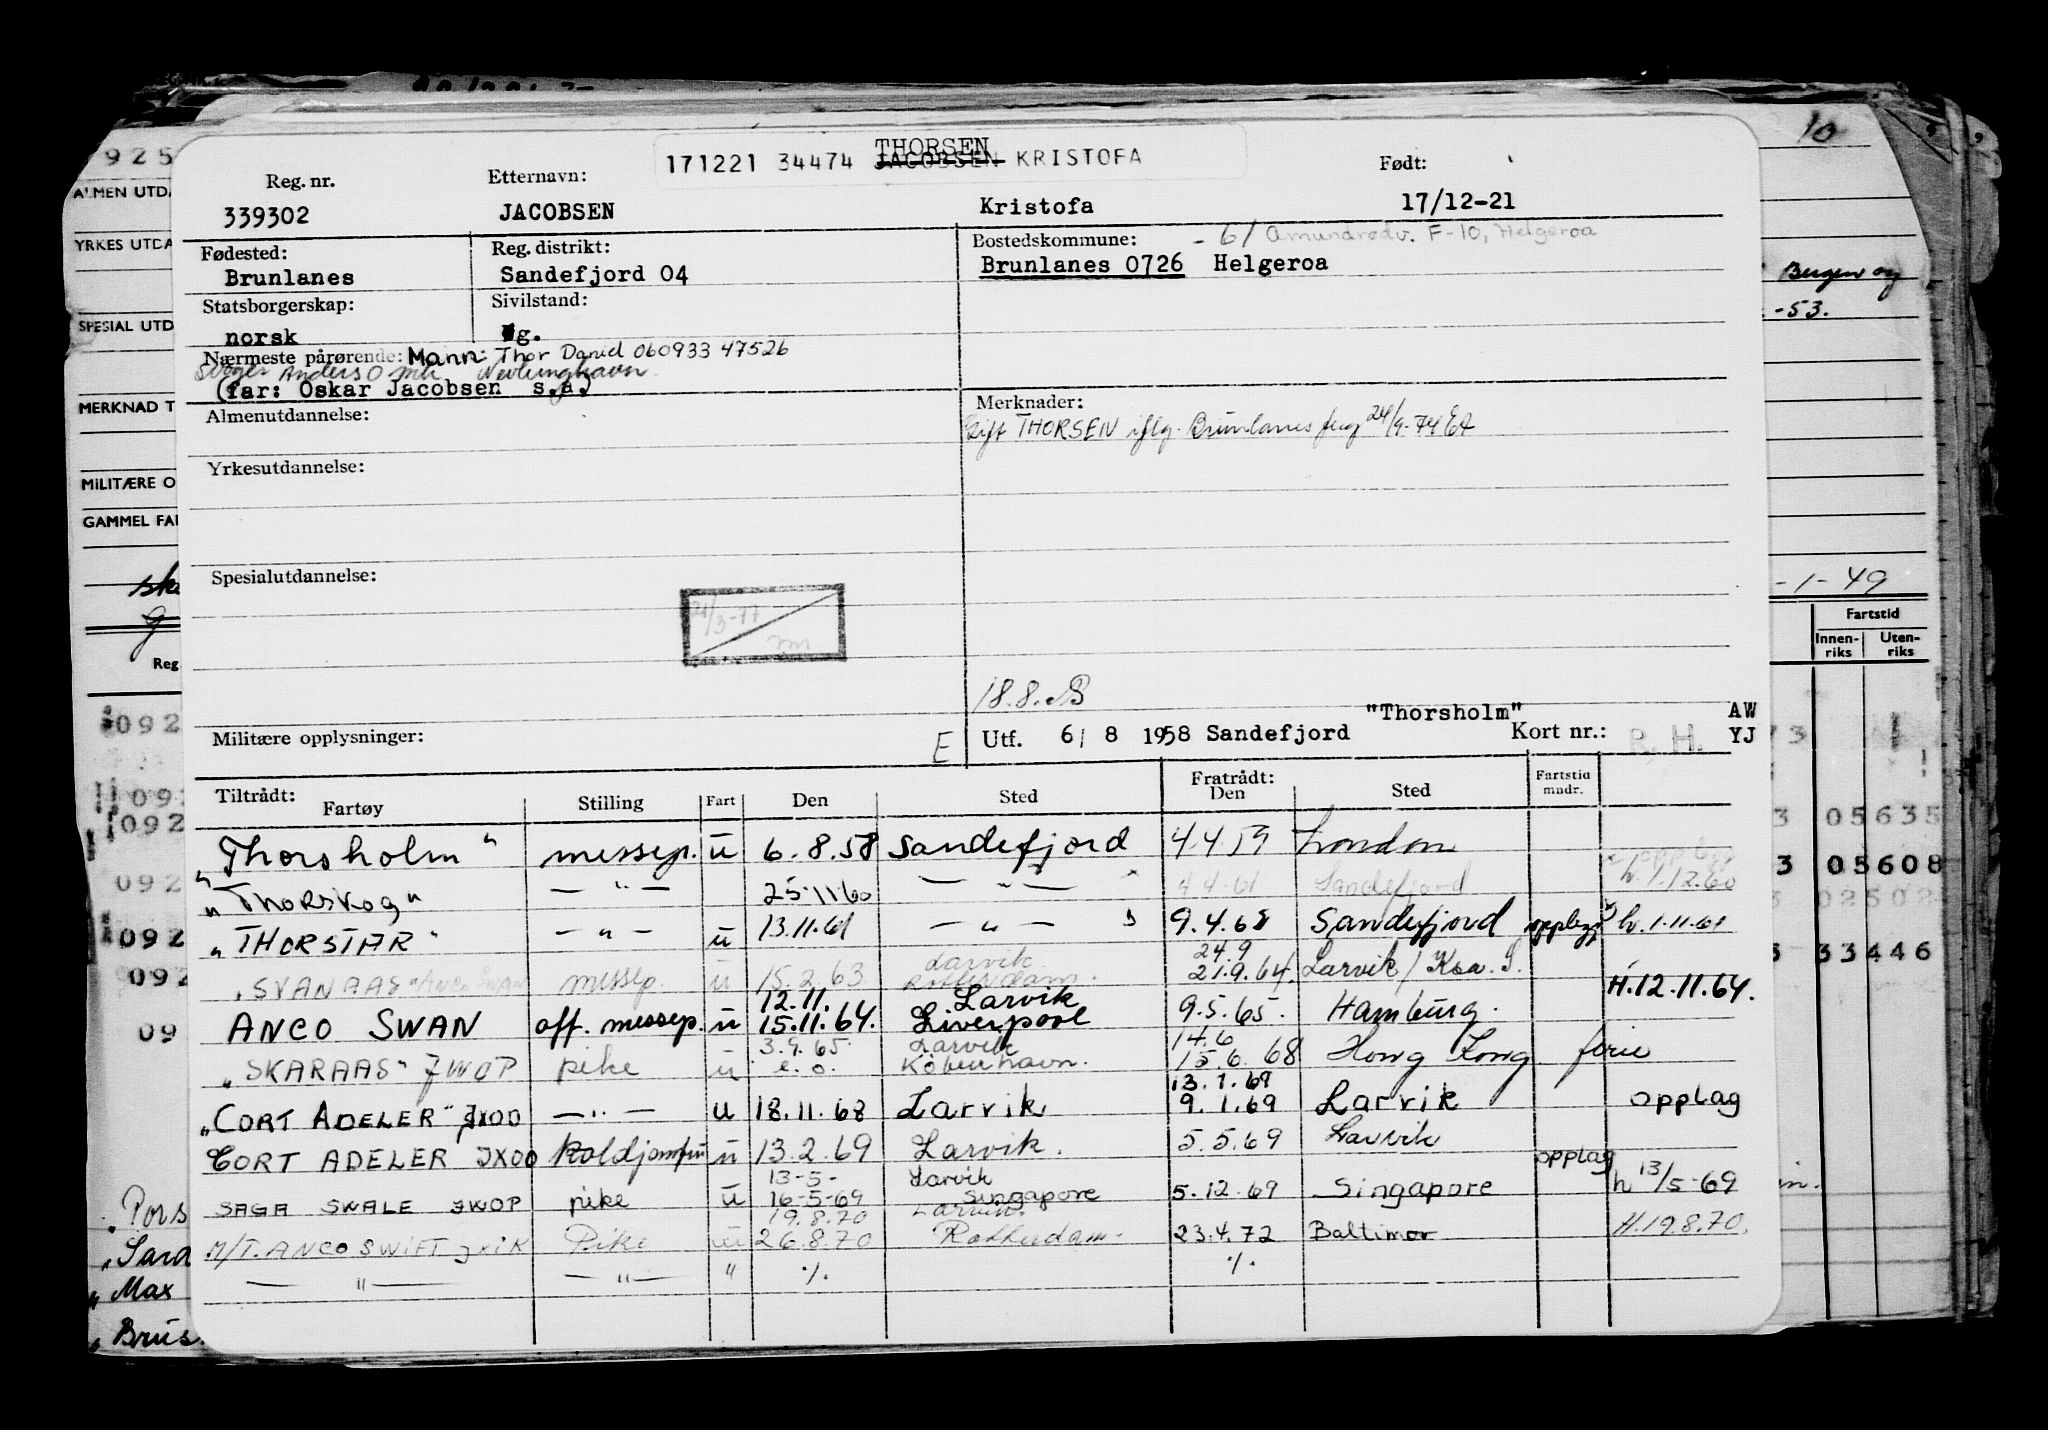 THORSEN
171221 34474 JACOBSEN KRISTOFA
Reg. nr. Etternavn: Født:
339302 JACOBSEN Kristofa 17/12-21
Fødested: Reg. distrikt: Bostedskommune: - 61 Amundrødv. F-10, Helgeroa
Brunlanes Sandefjord 04 Brunlanes 0726 Helgeroa
Statsborgerskap: Sivilstand:
norsk g.
Nærmeste pårørende: Mann: Thor Daniel 060933 47526
Svoger Anders Nevlunghavn
(far: Oskar Jacobsen s.a.)
Almenutdannelse: Merknader:
Gift THORSEN iflg. Brunlanes 24/9-74
Yrkesutdannelse:
Spesialutdannelse:
21/3-77
18.8.
Militære opplysninger: E Utf. 6/ 8 1958 Sandefjord "Thorsholm" Kort nr.: B. H. AW YJ
Tiltrådt: Fartøy Stilling Fart Den Sted Fratrådt: Den Sted Fartstid mndr.
"Thorsholm" messep. u 6.8.58 Sandefjord 4.4.59 London
"Thorskog" — " — 25.11.60 — " — 4.4.61 Sandefjord h.1.12.60
"THORSTAR" — " — u 13.11.61 — " — 9.4.62 Sandefjord opplegg h.1.11.61
Larvik 24.9
"SVANAAS" "Anco Swan" messep. u 15.2.63 Rotterdam. 21.9.64. Larvik / Ksa. S.
12.11. Larvik H.12.11.64.
ANCO SWAN off. messep. u 15.11.64. Liverpool 9.5.65. Hamburg.
3.9.65 Larvik 14.6
"SKARAAS" JWOP pike u e.o. København. 15.6.68 Hong Kong ferie
13.1.69
"CORT ADELER" JXOO — " — u 18.11.68 Larvik 9.1.69 Larvik opplag
CORT ADELER JXOO koldjomfru u 13.2.69 Larvik. 5.5.69 Larvik opplag
13-5- Larvik
SAGA SWALE JWOP pike u 16-5-69 Singapore 5.12.69 Singapore h 13/5-69
19.8.70 Larvik
M/T. ANCO SWIFT JXIK Pike u 26.8.70 Rotterdam. 23.4.72 Baltimor H.19.8.70.
— " — — " — " ./. ./.
925
ALMEN UTDA
YRKES UTDA
SPESIAL UTD
MERKNAD T
MILITÆRE O
GAMMEL FAR
ske
G
Reg
092
092
092
092
092
092
09
Pors
"Sara
"Max
"Brus.
10
Bergen og
-53.
-1-49
Fartstid
Innen-riks Uten-riks
73
3 05635
3 05608
02502
3 33446